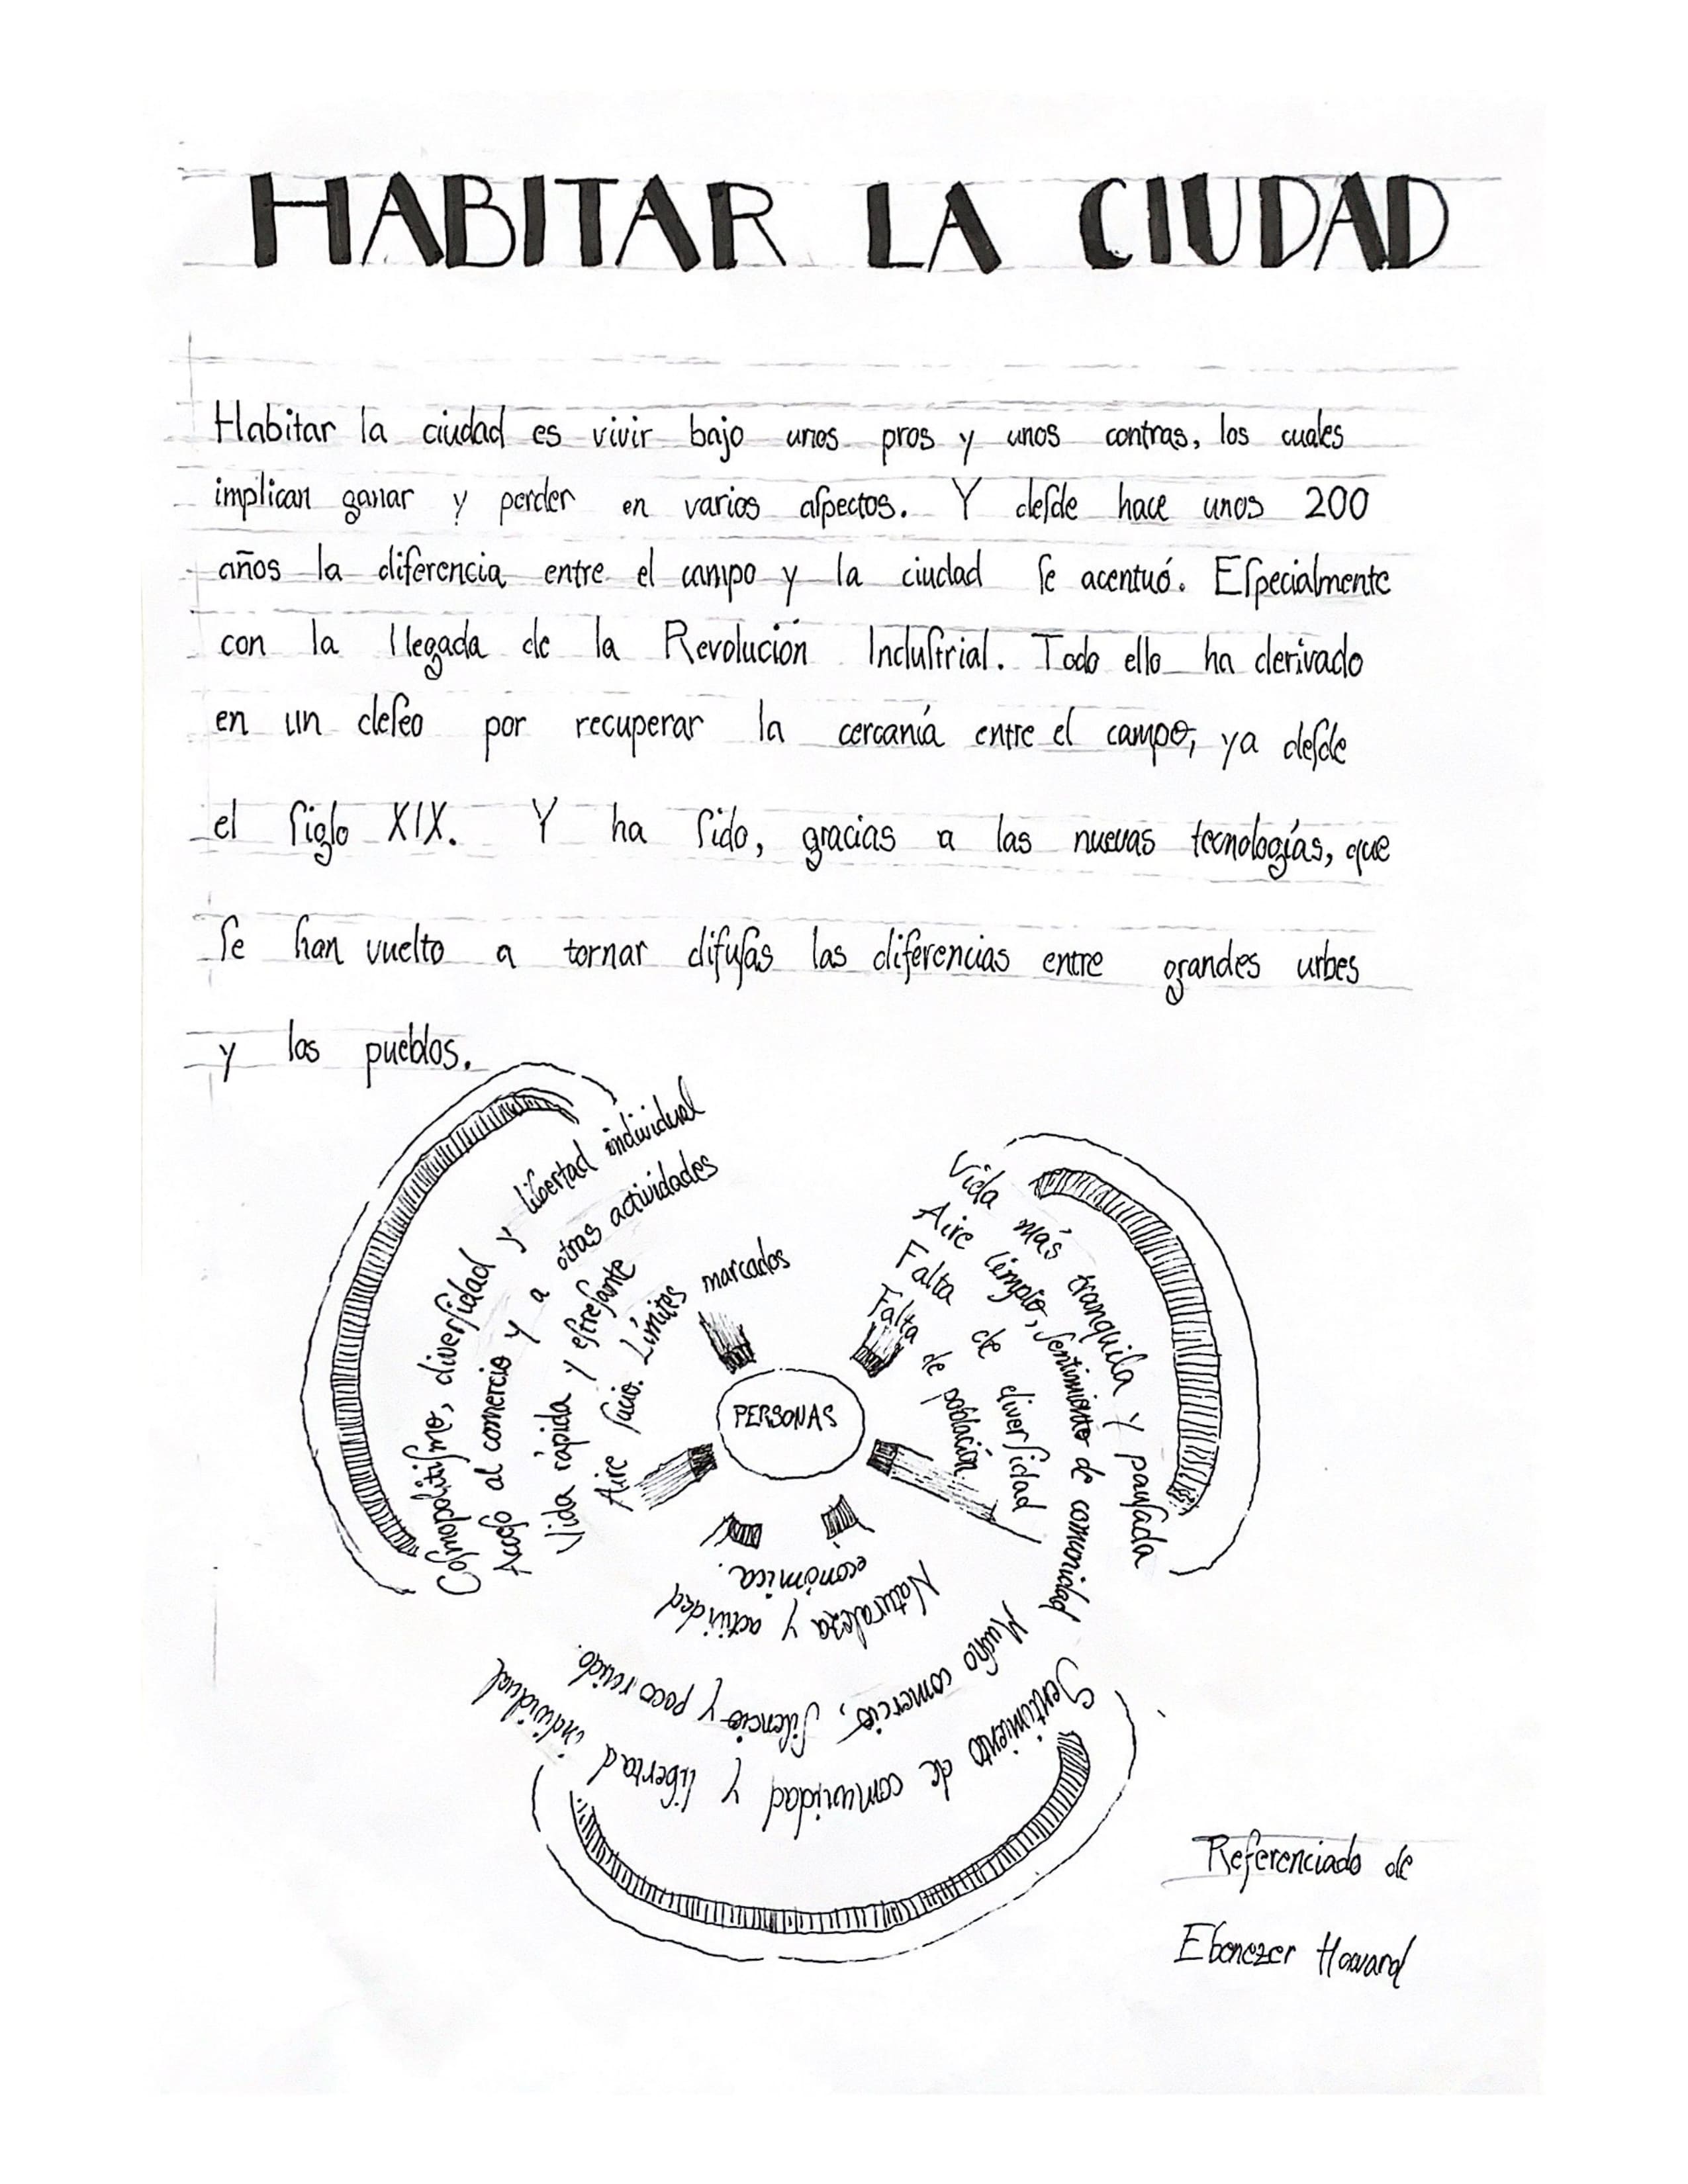 HABITAR LA CIUDAD
Habitar la ciudad es vivir bajo unos pros y unos contras, los cuales
implican ganar y perder en varios aſpectos. Y deſde hace unos 200
años la diferencia entre el campo y la ciudad ſe acentuó. Eſpecialmente
con la llegada de la Revolución Induſtrial. Todo ello ha derivado
en un deſeo por recuperar la cercanía entre el campo, ya deſde
el ſiglo XIX. Y ha ſido, gracias a las nuevas tecnologías, que
ſe han vuelto a tornar difuſas las diferencias entre grandes urbes
y los pueblos.
Coſmopolitiſmo, diverſidad y libertad individual
Acceſo al comercio y a otras actividades
Vida rápida y eſtreſante
Aire ſucio. Límites marcados
Vida más tranquila y pauſada
Aire limpio, ſentimiento de comunidad
Falta de diverſidad
Falta de población.
PERSONAS
Naturaleza y actividad
económica.
Mucho comercio, ſilencio y poco ruido.
Sentimiento de comunidad y libertad individual
Referenciado de
Ebenezer Howard